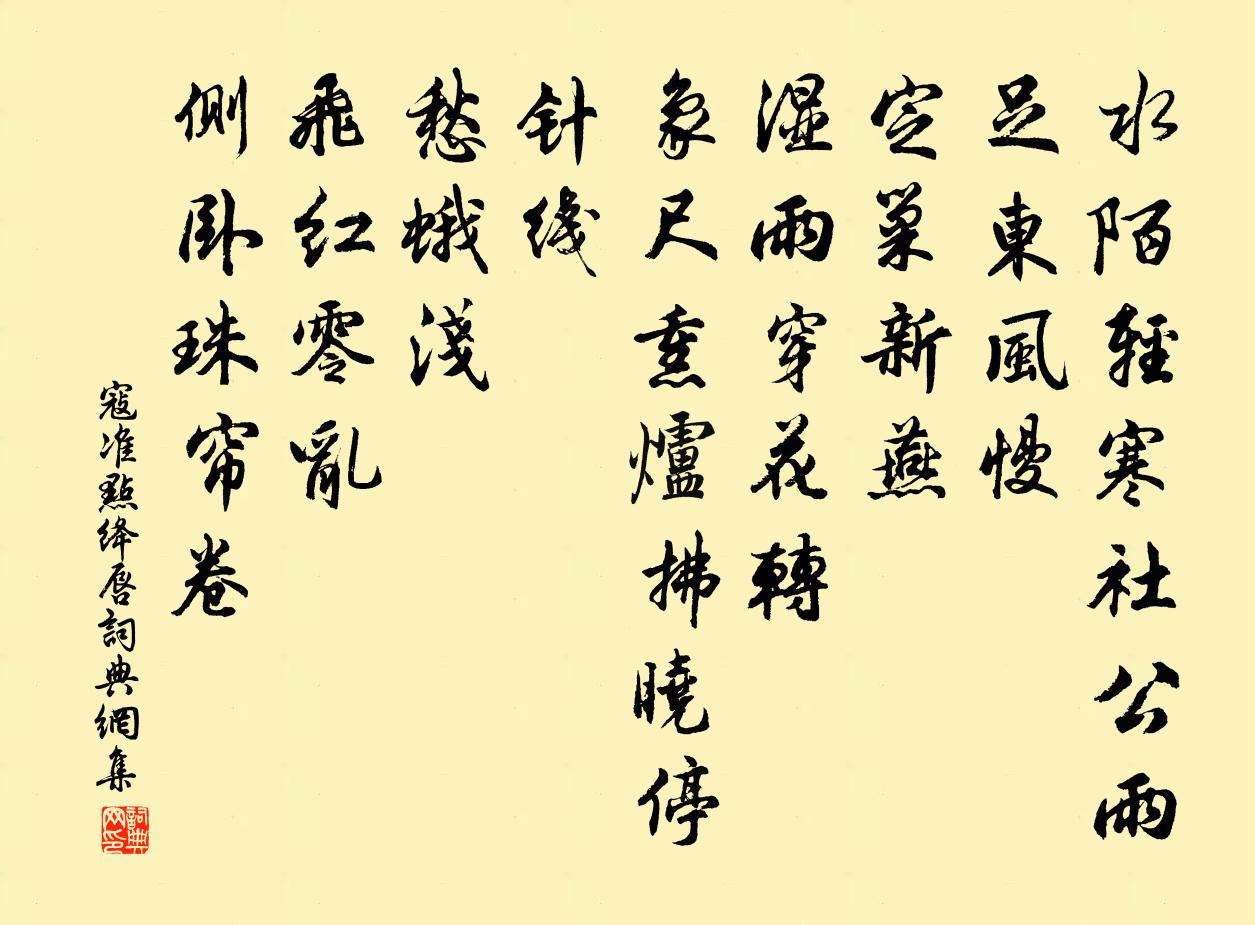 水陌輕寒社公雨
足東風慢
定巢新燕
湿雨穿花轉
象尺熏爐拂曉停
针线
愁蛾淺
飛红零亂
側卧珠帘卷
寇准點绛唇詞典網集
詞典网印